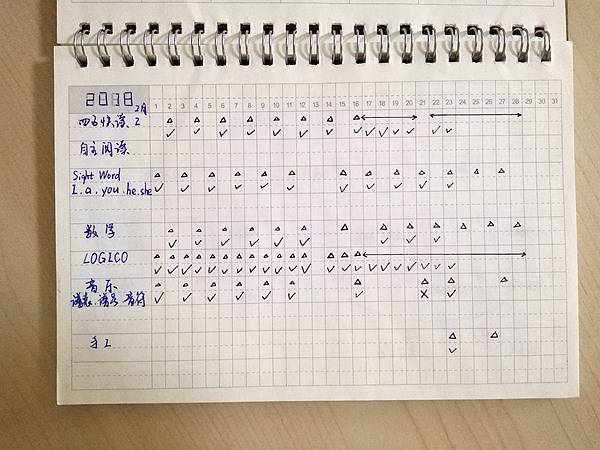 2018 2月 1 2 3 4 5 6 7 8 9 10 11 12 13 14 15 16 17 18 19 20 21 22 23 24 25 26 27 28 29 30 31
四五快读 2
自主阅读
Sight Word
I. a. you. he. she
数学
LOGICO
音乐
音符
手工